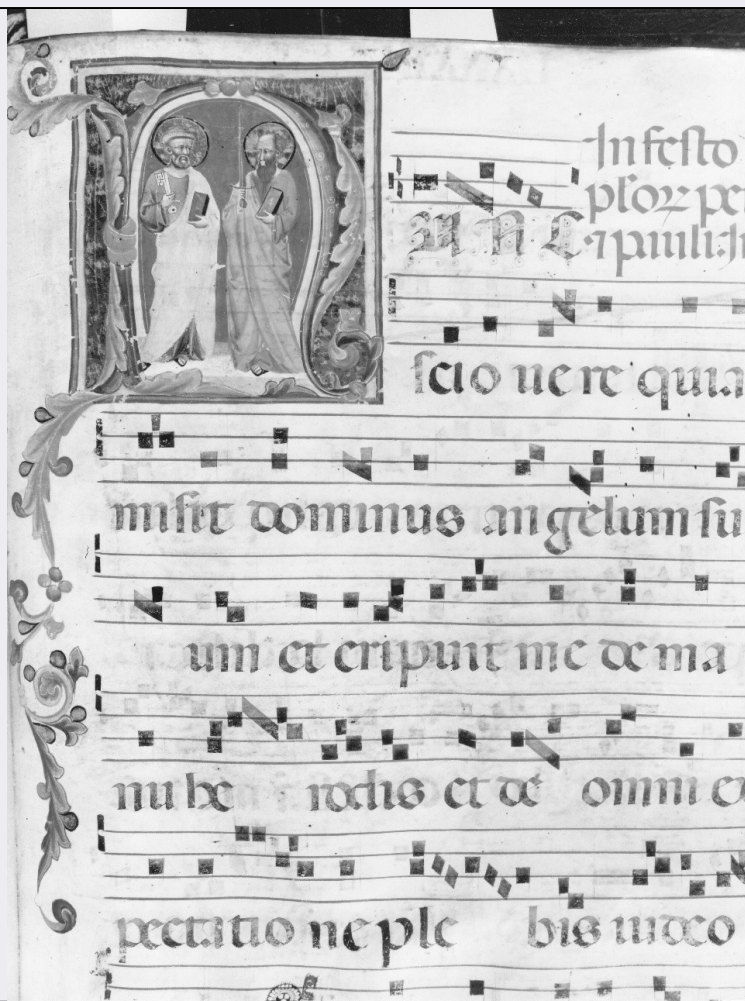 In festo
ploꝝ pe
NUNC ⁊ pauli. In
scio uere quia
misit dominus angelum su
um et eripuit me de ma
nu he rodis et de omni ex
pectatio ne ple bis iudeo